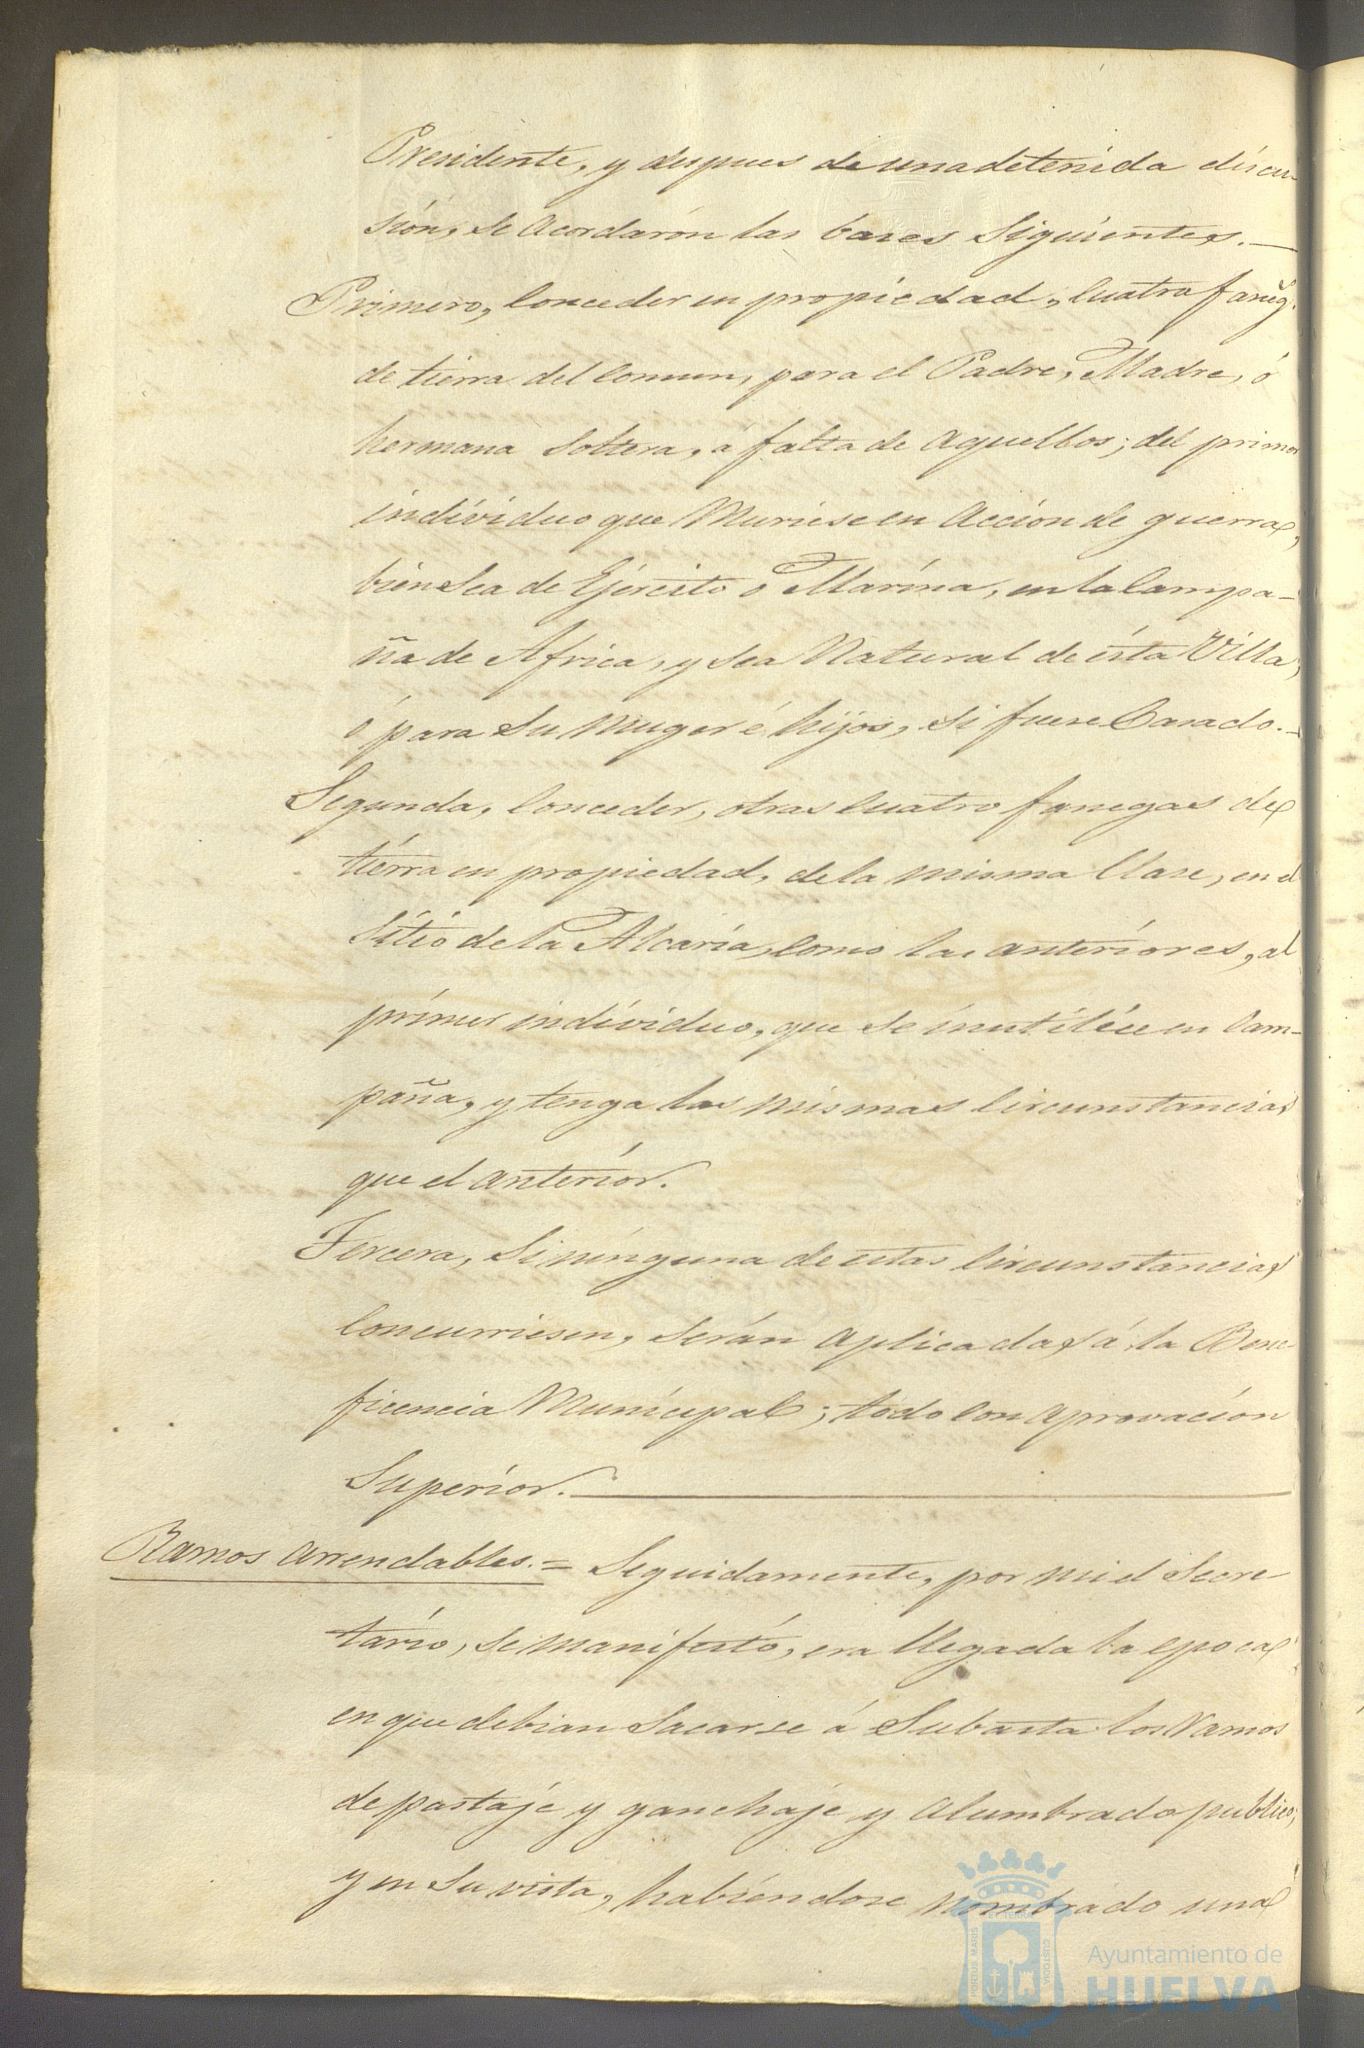 Presidente, y despues de una detenida discu-
sión, se acordarón las bases siguientes.—
Primero, Conceder en propiedad, cuatro faneg.
de tierra del comun, para el Padre, Madre, ó
hermana soltera, á falta de aquellos; del primer
individuo que muriese en acción de guerra,
bien sea de Ejército o Marina, en la Campa-
ña de Africa, y sea natural de ésta Villa,
ó para su muger é hijos, si fuese Casado.—
Segunda, Conceder, otras cuatro fanegas de
tierra en propiedad, de la misma Clase, en el
sitió de la Alcaria, como las anterióres, al
primer individuo, que se inutilíce en Cam-
paña, y tenga las mismas circunstancias
que el anteriór.
Tercera, Si ninguna de estas circunstancias
concurriesen, serán aplicadas á la Bene-
ficencia Municipal; todo con aprovación
Superiór.
Ramos arrendables. = Seguidamente, por mi el Secre-
tario, se manifestó, era llegada la epoca
en que debian sacarse á Subasta los ramos
de pastaje y ganchaje y alumbrado publico;
y en su vista, habiéndose nombrado una
PORTUS MARIS
CUSTODIA
Ayuntamiento de
HUELVA